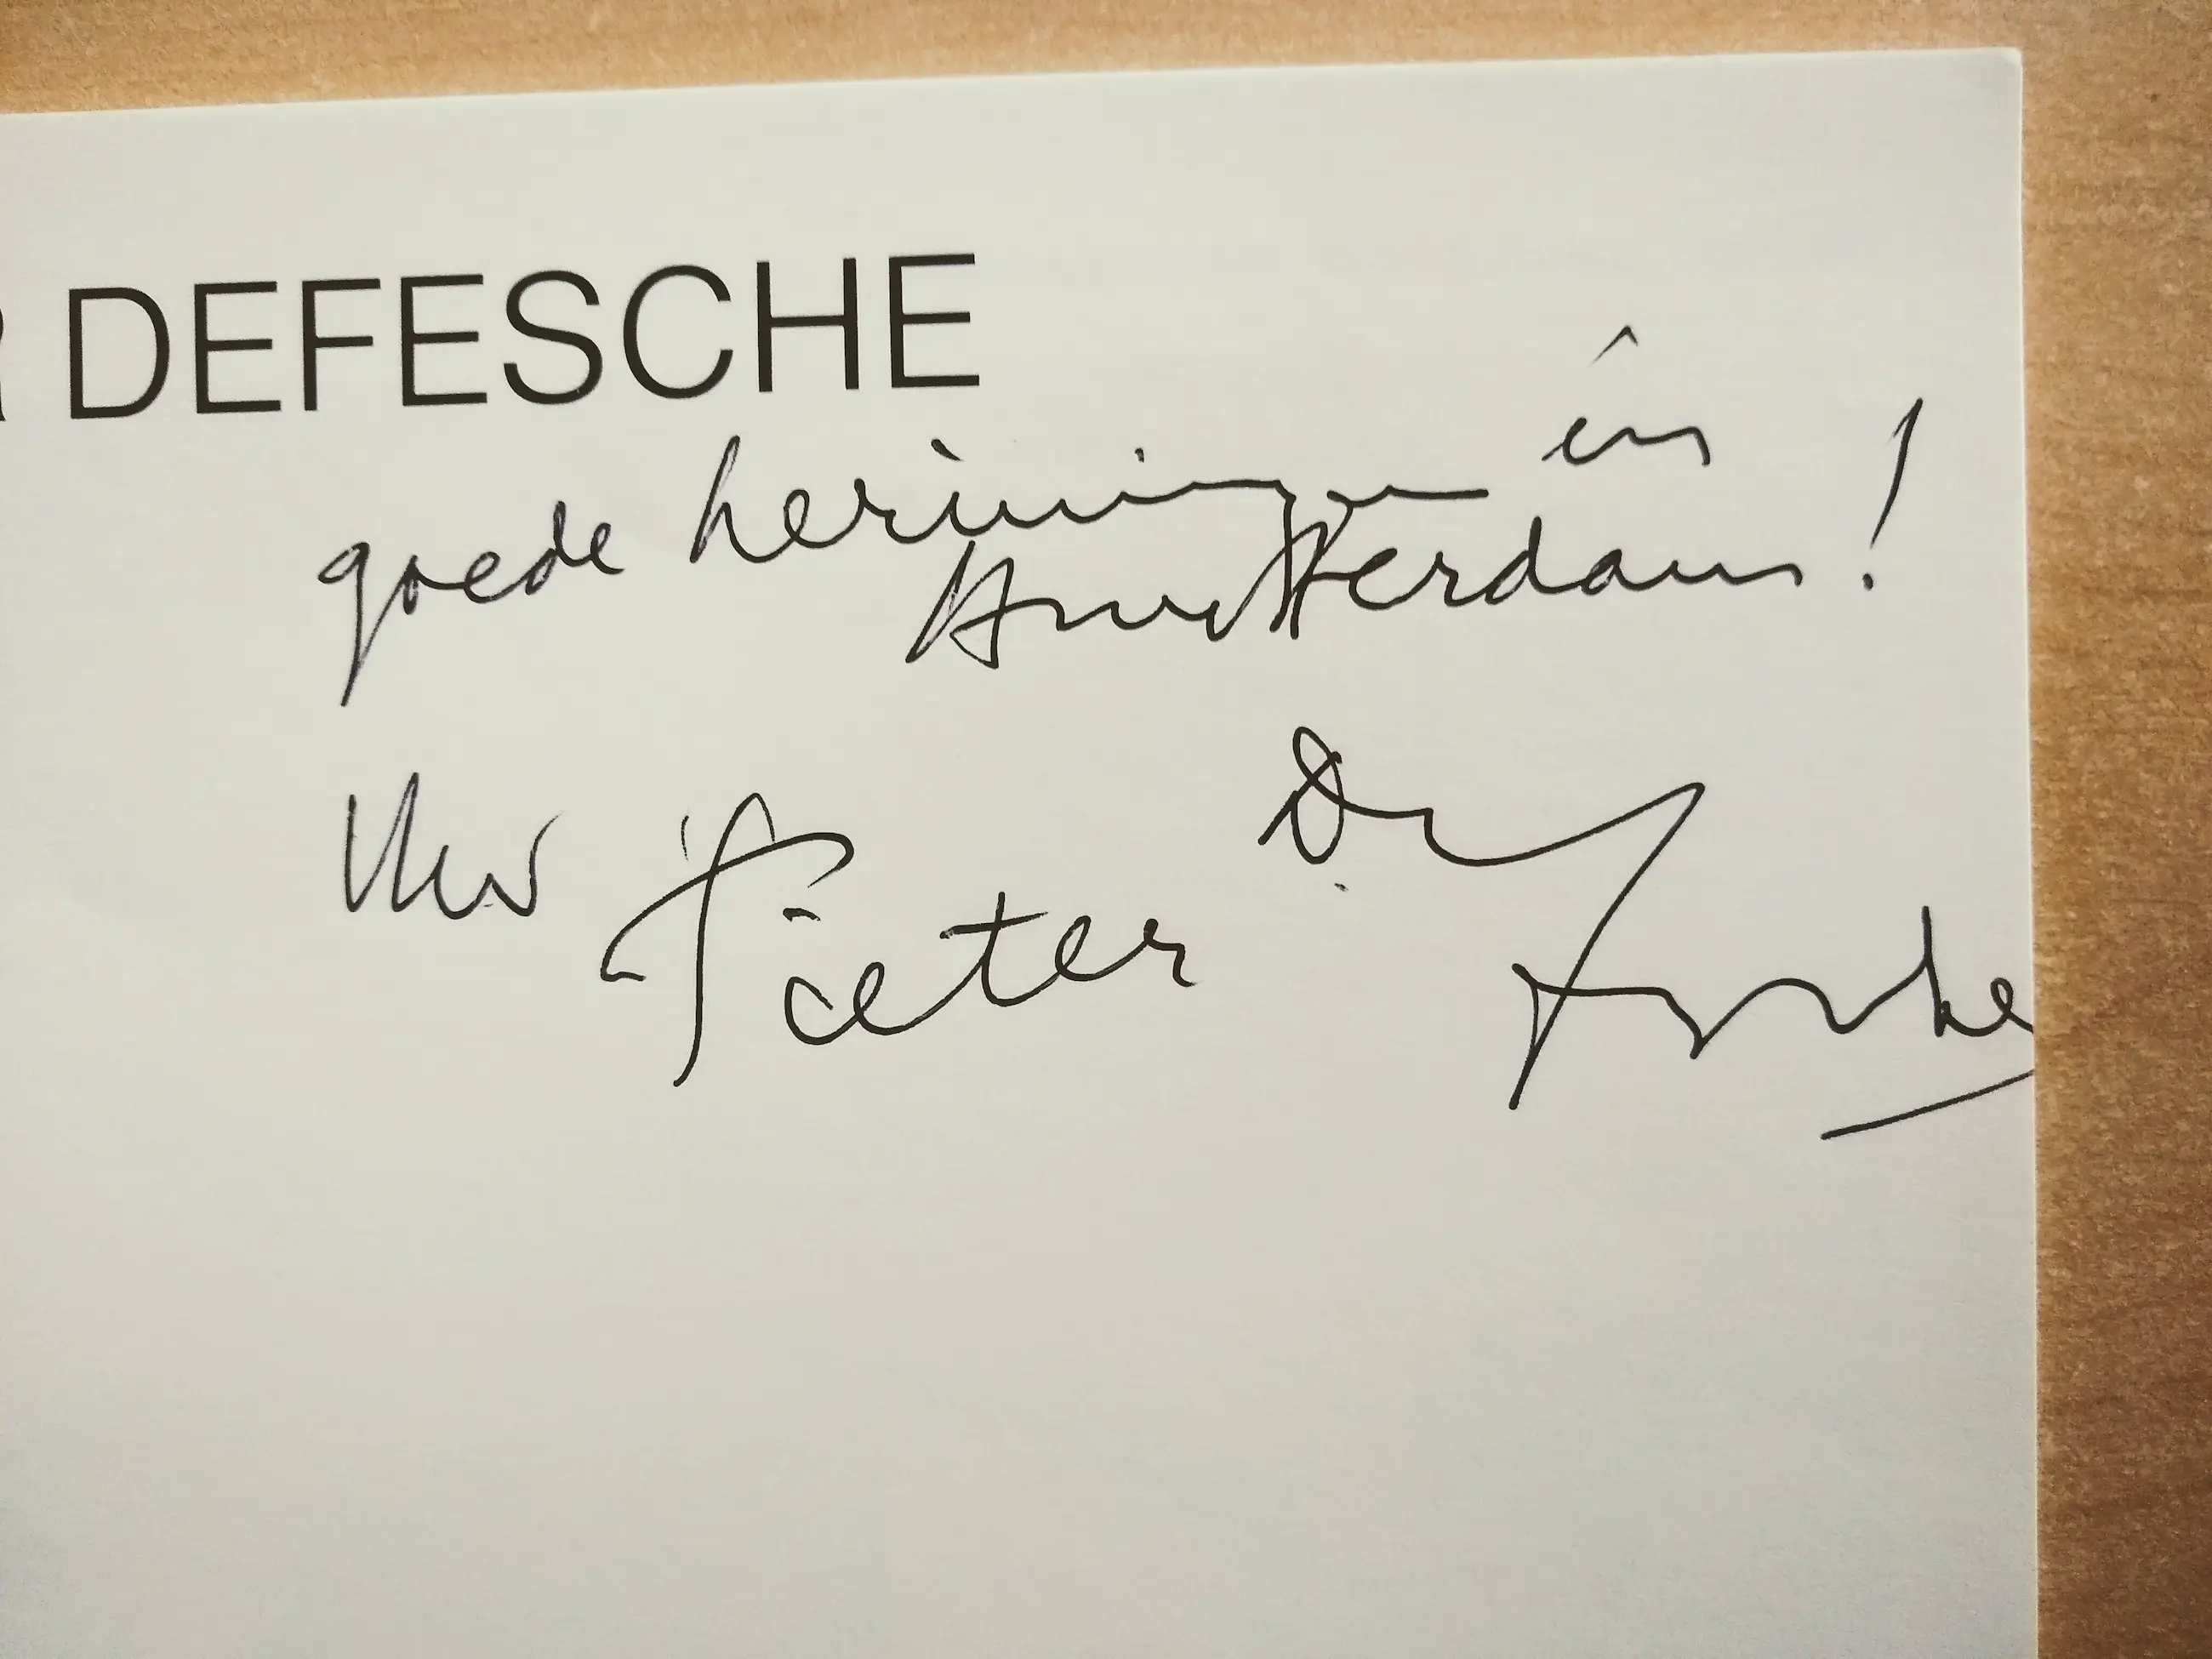 R DEFESCHE
goede herinneringen in
Amsterdam!
Uw Pieter Defesche